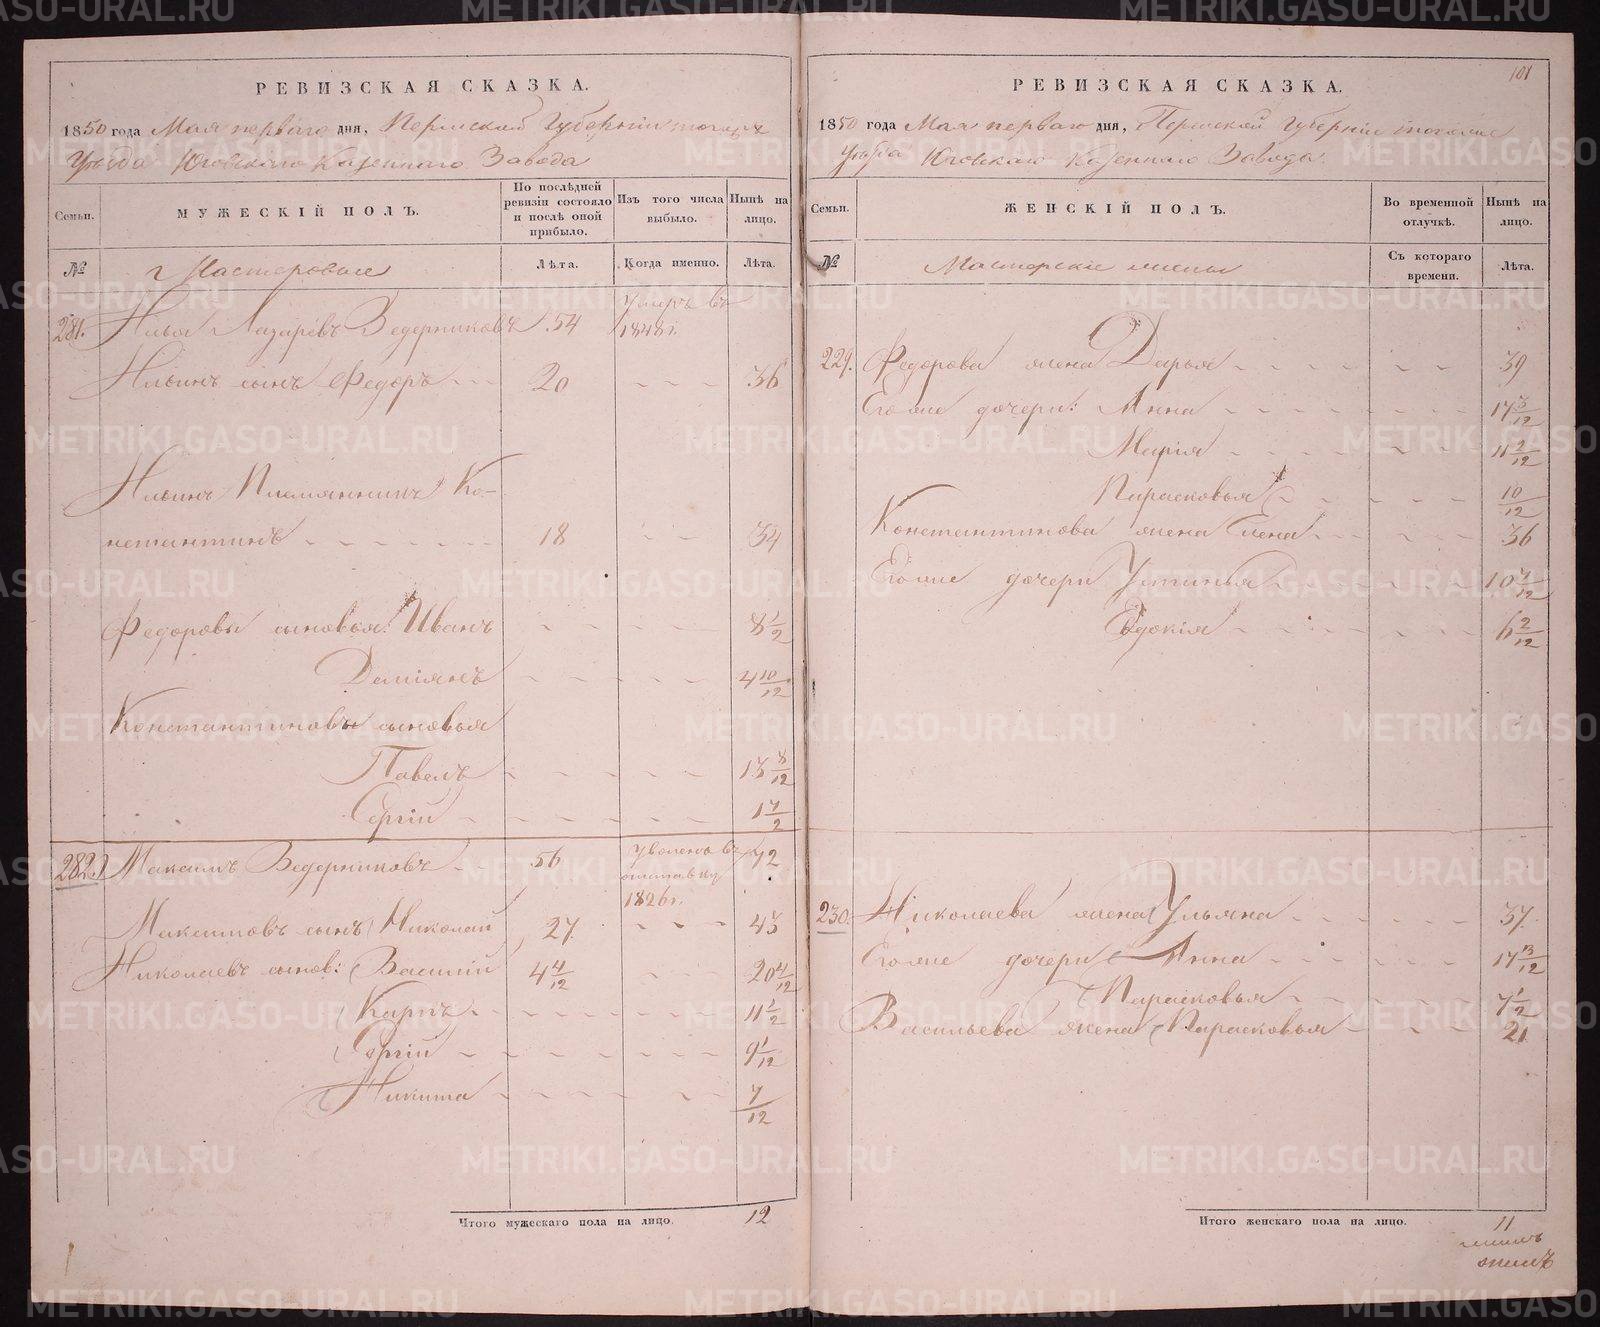 РЕВИЗСКАЯ СКАЗКА.
1850 года Мая перваго дня, Пермской Губернии тогожъ
Уѣзда Юговскаго Казеннаго Завода
Семьи.
МУЖЕСКІЙ ПОЛЪ.
По послѣдней ревизіи состояло и послѣ оной прибыло.
Изъ того числа выбыло.
Нынѣ на лицо.
№
Мастеровые
Лѣта.
Когда именно.
Лѣта.
281. Илья Лазаревъ Ведерниковъ 54 умеръ въ 1848 г.
Ильинъ сынъ Федоръ 20 36
Ильинъ Племянникъ Ко-
нстантинъ 18 34
Федоровы сыновья: Иванъ 8 1/2
Даміянъ 4 10/12
Константиновы сыновья
Павелъ 13
Сергій
282. Максимъ Ведерниковъ 56 уволенъ въ отставку 1826 г. 72
Максимовъ сынъ Николай 27 43
Николаевъ сынов: Василій 4 4/12 20 4/12
Карпъ 11 1/2
Сергій 9 1/12
Никита 7/12
Итого мужескаго пола на лицо. 12
101
РЕВИЗСКАЯ СКАЗКА.
1850 года Мая перваго дня, Пермской Губерніи тогоже
Уѣзда Юговскаго Казеннаго Завода
Семьи.
ЖЕНСКІЙ ПОЛЪ.
Во временной отлучкѣ.
Нынѣ на лицо.
№
Мастерскіе жены
Съ котораго времени.
Лѣта.
229. Федорова жена Дарья 39
Егоже дочери: Анна 17
Марія 11 2/12
Парасковья 10/12
Константинова жена Елена 36
Егоже дочери Устинья 10
Евдокія 6 2/12
230. Николаева жена Ульяна 37
Егоже дочери Анна 17
Парасковья 7 1/2
Васильева жена Парасковья 21
Итого женскаго пола на лицо. 11
METRIKI.GASO-URAL.RU